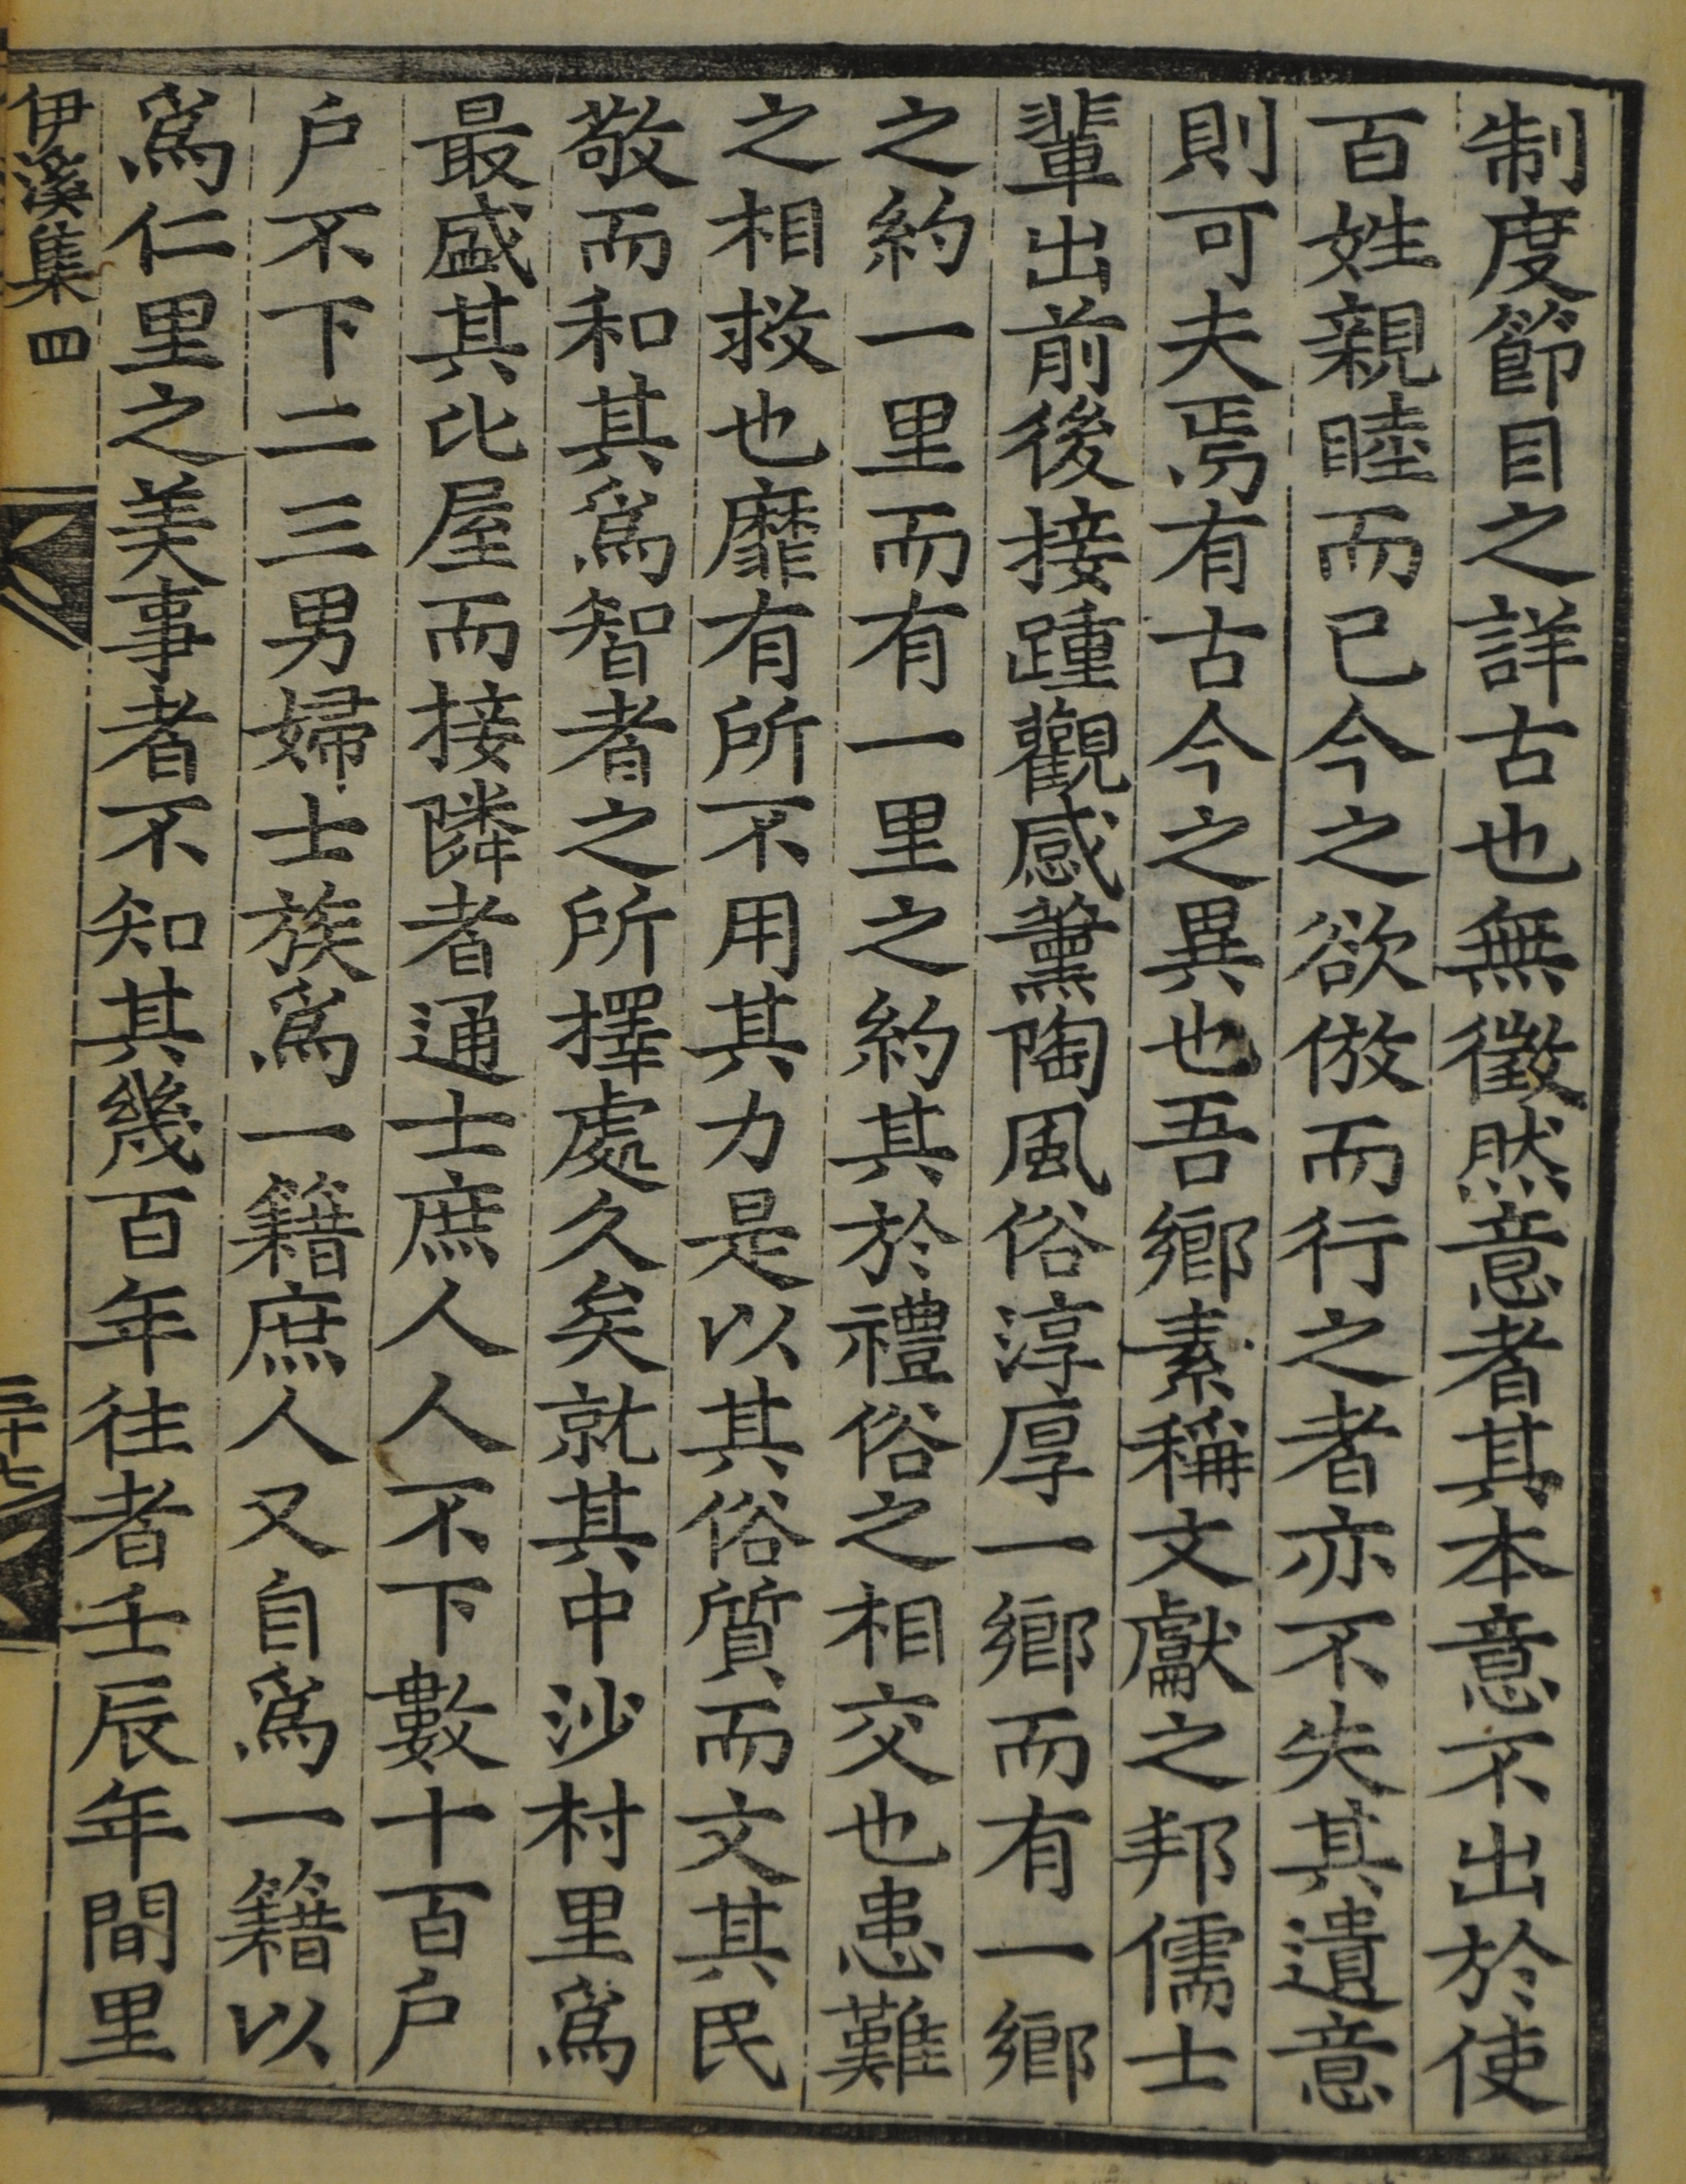 制度節目之詳古也無徵然意者其本意不出於使
百姓親睦而已今之欲倣而行之者亦不失其遺意
則可夫焉有古今之異也吾鄕素稱文獻之邦儒士
輩出前後接踵觀感薰陶風俗淳厚一鄕而有一鄕
之約一里而有一里之約其於禮俗之相交也患難
之相救也靡有所不用其力是以其俗質而文其民
敬而和其爲智者之所擇處久矣就其中沙村里爲
最盛其比屋而接隣者通士庶人人不下數十百戶
戶不下二三男婦士族爲一籍庶人又自爲一籍以
爲仁里之美事者不知其幾百年徃者壬辰年間里
伊溪集 四
三十七